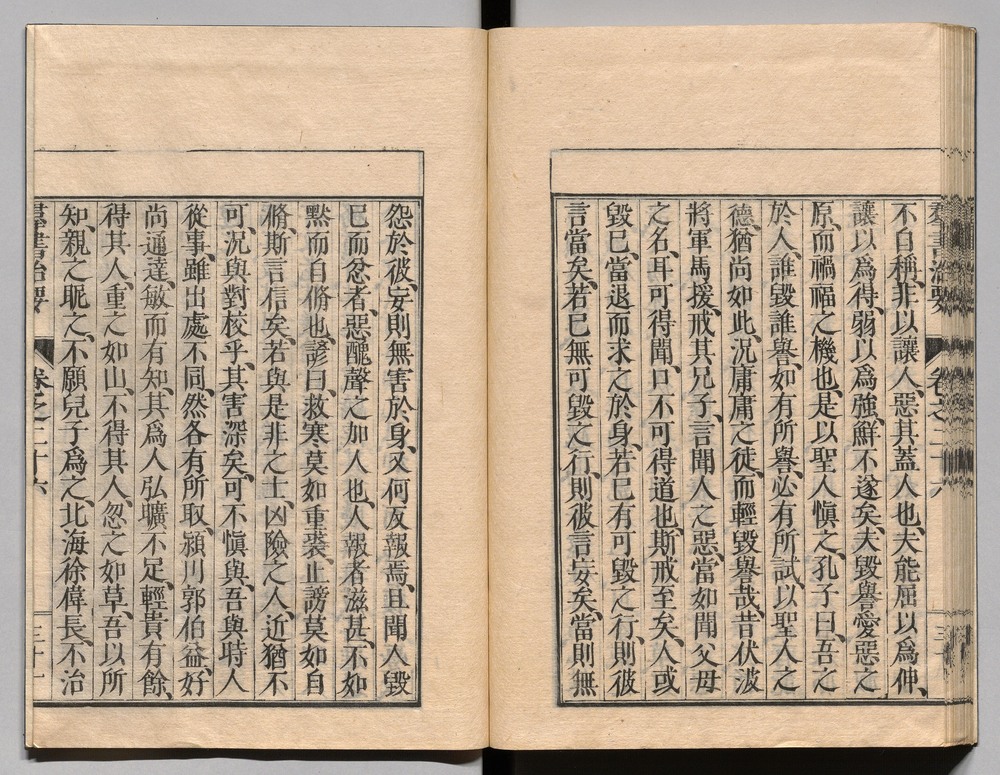 不自稱、非以讓人、惡其蓋人也、夫能屈以爲伸、
讓以爲得、弱以爲強、鮮不遂矣、夫毀譽愛惡之
原而禍福之機也、是以聖人愼之、孔子曰、吾之
於人、誰毀誰譽、如有所譽、必有所試、以聖人之
德、猶尚如此、況庸庸之徒、而輕毀譽哉、昔伏波
將軍馬援、戒其兄子、言聞人之惡、當如聞父母
之名、耳可得聞、口不可得道也、斯戒至矣、人或
毀已、當退而求之於身、若已有可毀之行、則彼
言當矣、若已無可毀之行、則彼言妄矣、當則無
怨於彼、妄則無害於身、又何反報焉、且聞人毀
已而忿者、惡醜聲之加人也、人報者滋甚、不如
黙而自脩也、諺曰、救寒莫如重裘、止謗莫如自
脩、斯言信矣、若與是非之士、凶險之人、近猶不
可、況與對校乎、其害深矣、可不愼與、吾與時人
從事、雖出處不同、然各有所取、潁川郭伯益、好
尚通達、敏而有知、其爲人弘曠不足、輕貴有餘、
得其人、重之如山、不得其人、忽之如草、吾以所
知、親之昵之、不願兒子爲之、北海徐偉長、不治
羣書治要 卷之二十六 三十一